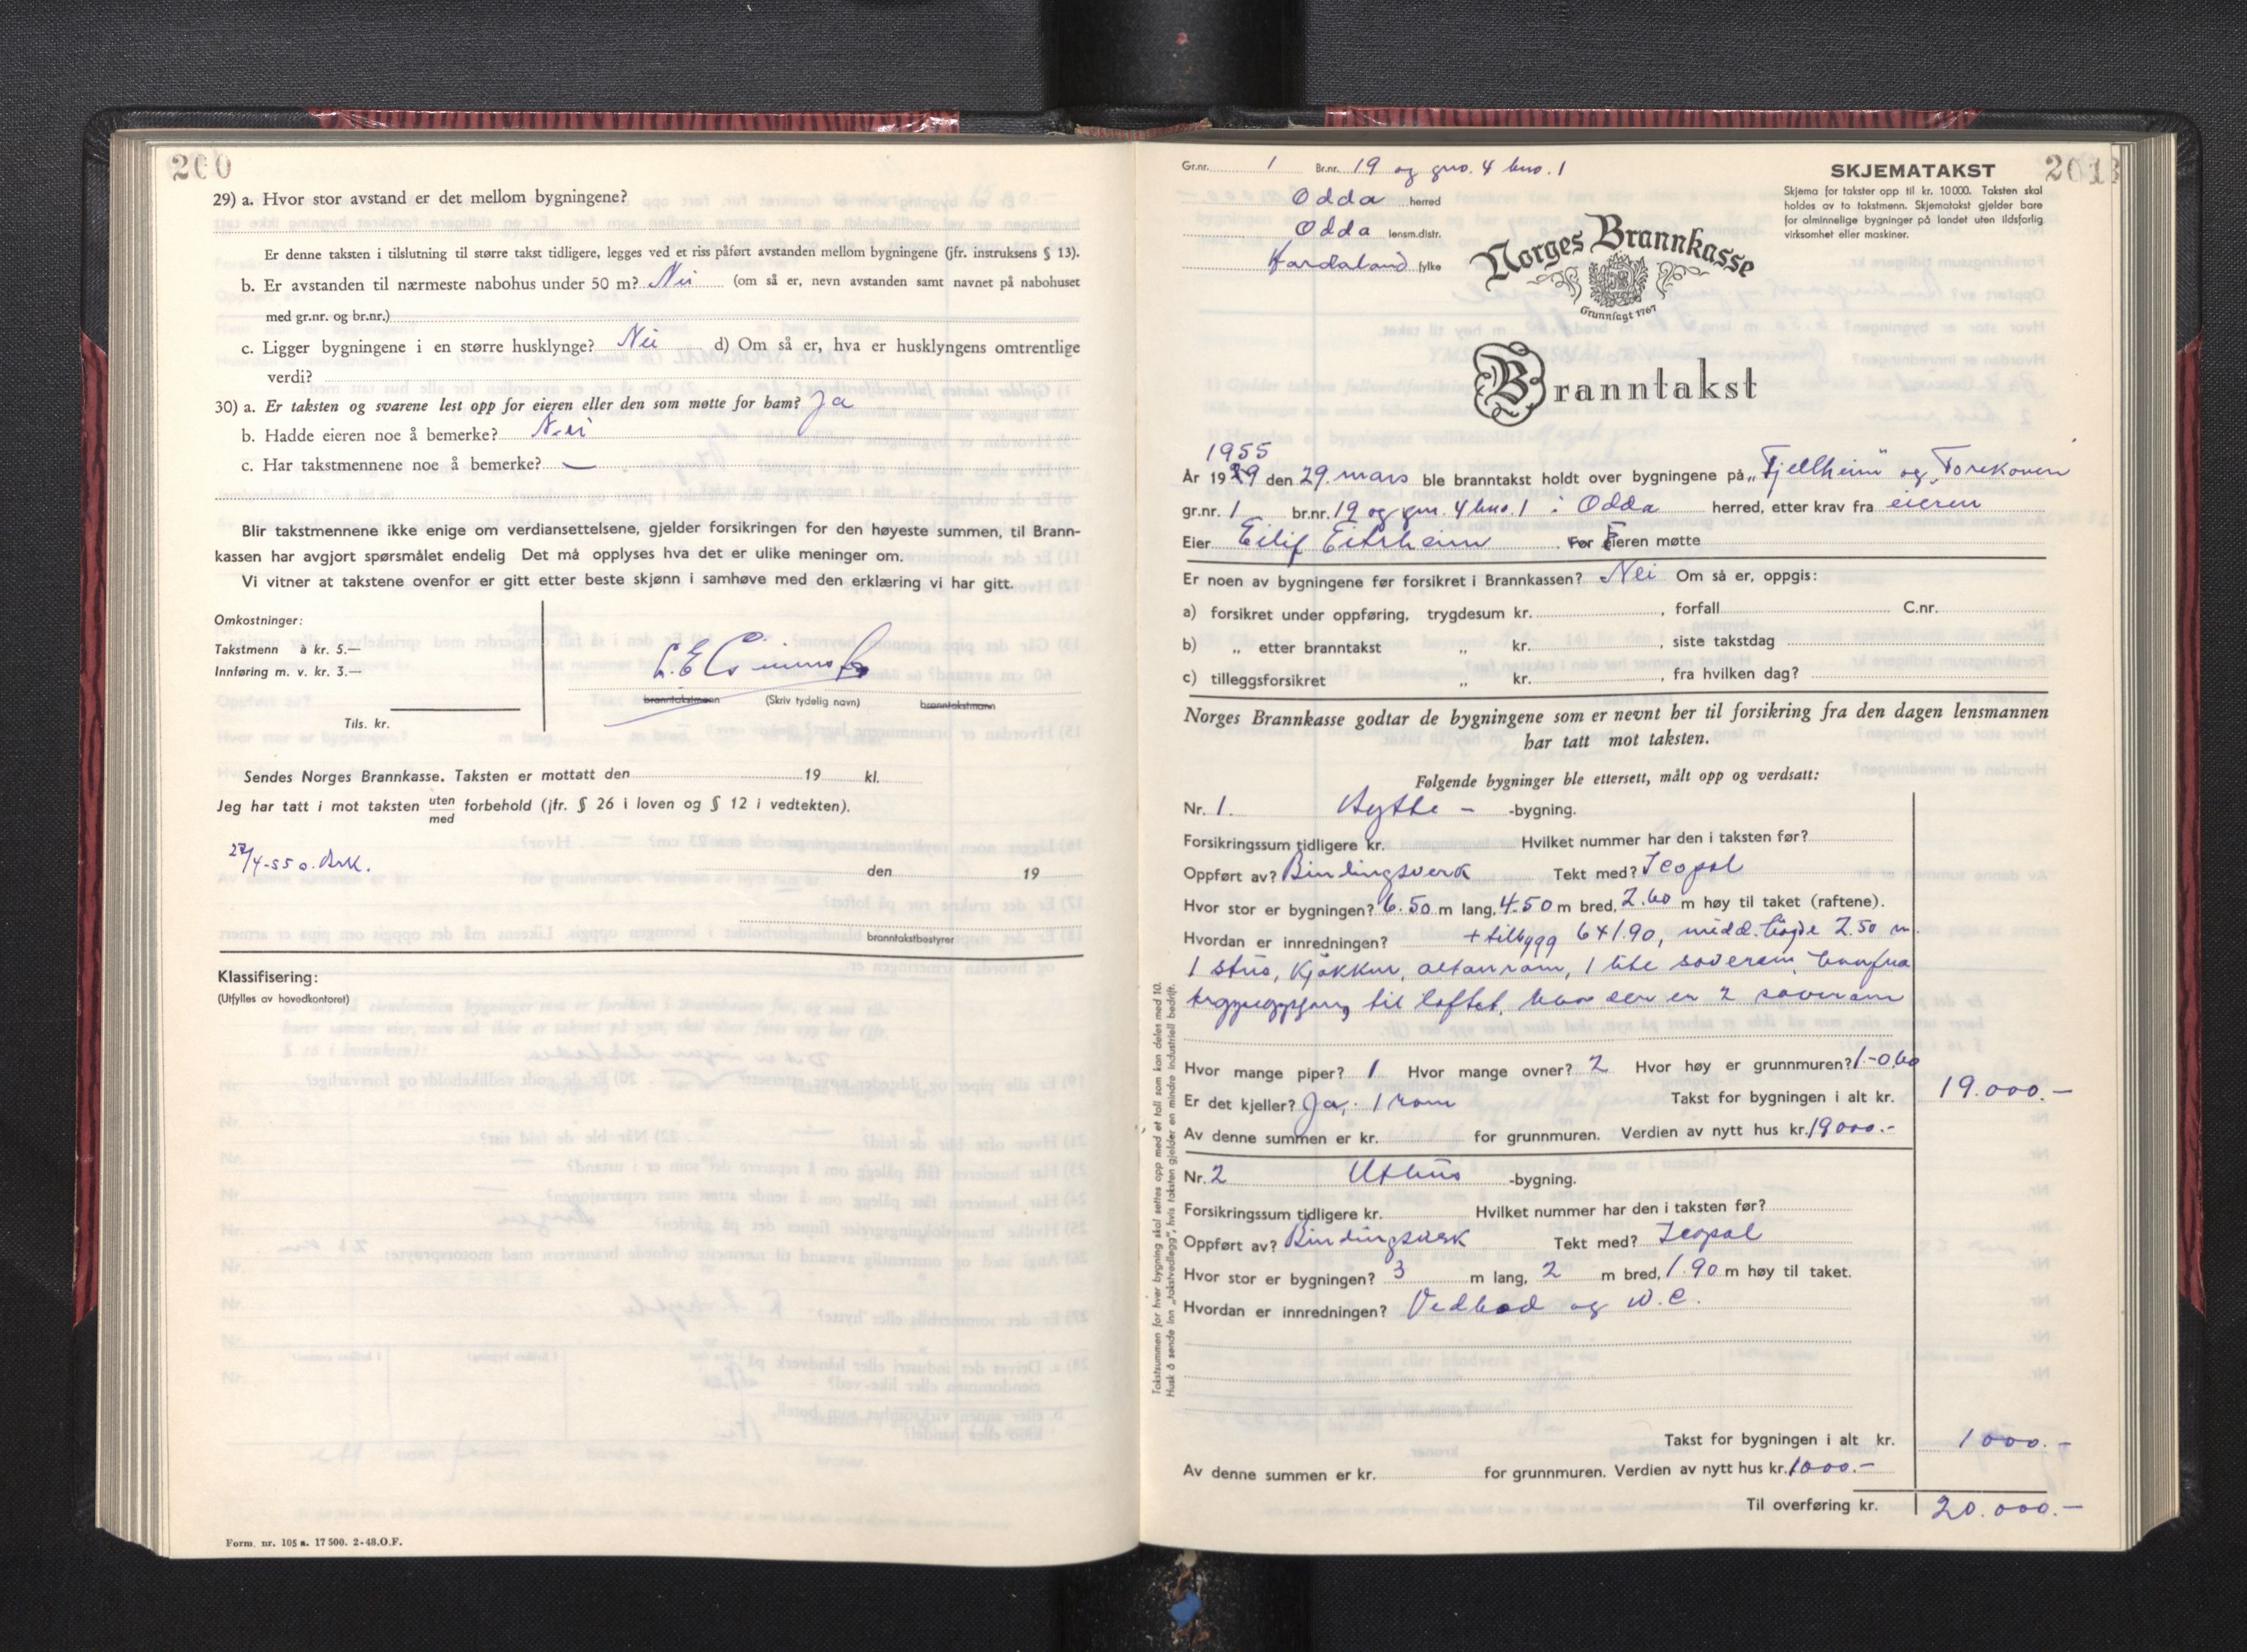 200
29) a. Hvor stor avstand er det mellom bygningene?
Er denne taksten i tilslutning til større takst tidligere, legges ved et riss påført avstanden mellom bygningene (jfr. instruksens § 13).
b. Er avstanden til nærmeste nabohus under 50 m? Nei (om så er, nevn avstanden samt navnet på nabohuset
med gr.nr. og br.nr.)
c. Ligger bygningene i en større husklynge? Nei d) Om så er, hva er husklyngens omtrentlige
verdi?
30) a. Er taksten og svarene lest opp for eieren eller den som møtte for ham? Ja
b. Hadde eieren noe å bemerke? Nei
c. Har takstmennene noe å bemerke? —
Blir takstmennene ikke enige om verdiansettelsene, gjelder forsikringen for den høyeste summen, til Brann-
kassen har avgjort spørsmålet endelig Det må opplyses hva det er ulike meninger om.
Vi vitner at takstene ovenfor er gitt etter beste skjønn i samhøve med den erklæring vi har gitt.
Omkostninger:
Takstmenn à kr. 5.—
Innføring m. v. kr. 3.—
branntakstmann (Skriv tydelig navn) branntakstmann
Tils. kr.
Sendes Norges Brannkasse. Taksten er mottatt den 19 kl.
Jeg har tatt i mot taksten uten forbehold (jfr. § 26 i loven og § 12 i vedtekten).
med
27/4-55 o.
den 19
branntakstbestyrer
Klassifisering:
(Utfylles av hovedkontoret)
Form. nr. 105 a. 17 500. 2-48.O.F.
Gr.nr. 1 Br.nr. 19 og gno. 4 bno. 1
SKJEMATAKST 201
Skjema for takster opp til kr. 10000. Taksten skal
holdes av to takstmenn. Skjematakst gjelder bare
for alminnelige bygninger på landet uten ildsfarlig
virksomhet eller maskiner.
Odda herred
Odda lensm.distr.
Hordaland fylke
Norges Brannkasse
Grunnlagt 1767
Branntakst
1955
År 19 den 29. mars ble branntakst holdt over bygningene på „Fjellheim" og „Torekoven
gr.nr. 1 br.nr. 19 og gnr. 4 bno. 1 i Odda herred, etter krav fra eieren
Eier Eilif Eitrheim For Eieren møtte
Er noen av bygningene før forsikret i Brannkassen? Nei Om så er, oppgis:
a) forsikret under oppføring, trygdesum kr. , forfall C.nr.
b) „ etter branntakst „ kr. , siste takstdag
c) tilleggsforsikret „ kr. , fra hvilken dag?
Norges Brannkasse godtar de bygningene som er nevnt her til forsikring fra den dagen lensmannen
har tatt mot taksten.
Følgende bygninger ble ettersett, målt opp og verdsatt:
Nr. 1. Hytte - -bygning.
Forsikringssum tidligere kr. Hvilket nummer har den i taksten før?
Oppført av? Bindingsverk Tekt med? Icopal
Hvor stor er bygningen? 6.50 m lang, 4.50 m bred, 2.60 m høy til taket (raftene).
Hvordan er innredningen? + tilbygg 6x1.90, midd. høgde 2.50 m.
1 stue, kjøkken, altanrom, 1 lite soverom, herfra
trappeoppgang til loftet, hvor der er 2 soverom
Hvor mange piper? 1 Hvor mange ovner? 2 Hvor høy er grunnmuren? 1.-0.60
Er det kjeller? Ja, 1 rom Takst for bygningen i alt kr. 19.000.-
Av denne summen er kr. for grunnmuren. Verdien av nytt hus kr. 19000.-
Nr. 2 Uthus -bygning.
Forsikringssum tidligere kr. Hvilket nummer har den i taksten før?
Oppført av? Bindingsverk Tekt med? Icopal
Hvor stor er bygningen? 3 m lang, 2 m bred, 1.90 m høy til taket.
Hvordan er innredningen? Vedbod og W.C.
Takst for bygningen i alt kr. 1000.-
Av denne summen er kr. for grunnmuren. Verdien av nytt hus kr. 1000.-
Til overføring kr. 20.000.-
Takstsummen for hver bygning skal settes opp med et tall som kan deles med 10.
Husk å sende inn „takstvedlegg", hvis taksten gjelder en mindre industriell bedrift.